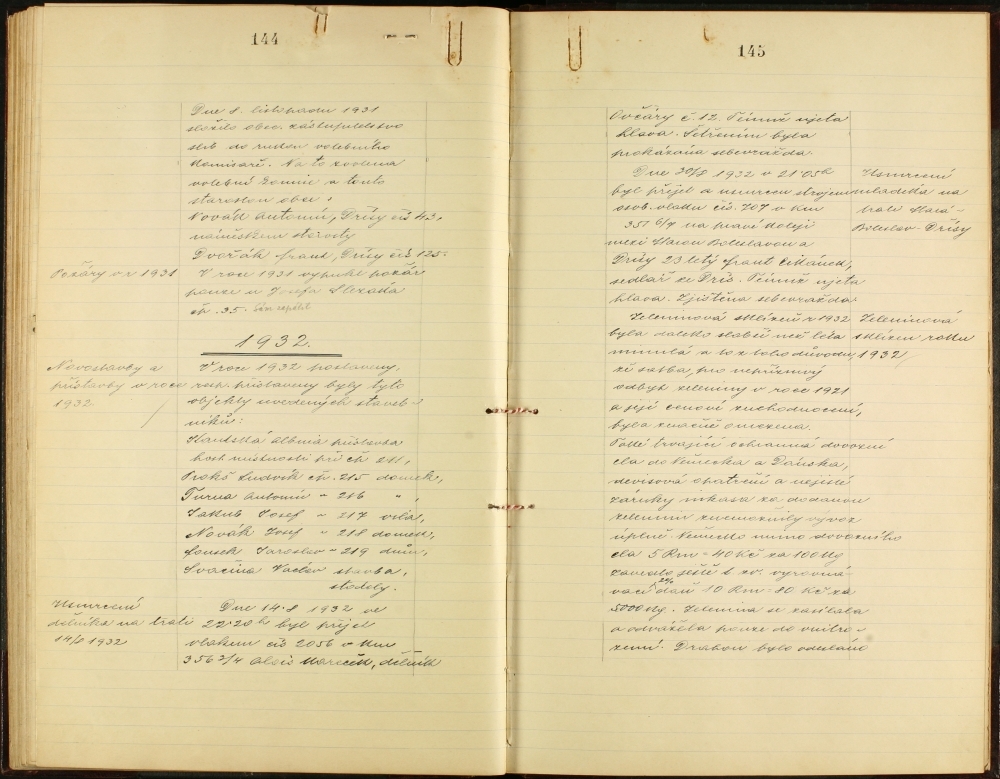 144
Dne 8. listopadu 1931
složilo obec. zastupitelstvo
slib do rukou volebního
komisaře. Na to zvolena
volební komise a tento
starostou obce:
Novák Antonín, Dřísy čís 43,
náměstkem starosty
Dvořák Frant, Dřísy čís 125.
Požáry v r 1931
V roce 1931 vypukl požár
pouze u Josefa Slezáka
čp. 35.
1932.
Novostavby a
přístavby v roce
1932.
V roce 1932 postaveny,
resp. přistaveny byly tyto
objekty uvedených staveb-
níků:
Hautská Albína přístavba
host. místnosti při čp 211,
Prokš Ludvík čp. 215 domek,
Turna Antonín " 216 " ,
Jakub Josef " 217 vila,
Novák Josef " 218 domek,
Fousek Jaroslav " 219 dům,
Svačina Václav stavba
stodoly.
Usmrcení
dělníka na trati
14/8 1932
Dne 14.8 1932 ve
22.20h byl přejet
vlakem čís 2056 v km
356 3/4 Alois Mareček, dělník
145
Ovčáry č. 12. Témuž ujeta
hlava. Šetřením byla
prokázána sebevražda.
Dne 30/8 1932 v 21.05h
byl přejet a usmrcen strojem
osob. vlaku čís. 707 v km
357 6/7 na pravé koleji
mezi Starou Boleslavou a
Dřísy 23 letý Frant Cikánek,
sedlář ze Dřís. Témuž ujeta
hlava. Zjištěna sebevražda.
Usmrcení
mladíka na
trati Stará-
Boleslav-Dřísy
Zeleninová sklizeň r 1932
byla daleko slabší než léta
minulá a to z toho důvodu,
že sadba, pro nepříznivý
odbyt zeleniny v roce 1921
a její cenové znehodnocení,
byla značně omezena.
Zeleninová
sklizeň roku
1932
Poté trvající ochranná dovozní
cla do Německa a Dánska,
devisová opatření a nejisté
záruky inkasa za dodanou
zeleninu znemožnily vývoz
úplně. Německo mimo dovozního
cla 5 Rm = 40 Kč za 100 kg
zavedlo ještě t. zv. vyrovná-
vací daň 10 Rm = 80 Kč za
5000 kg. Zelenina se zasílala
a odvážela pouze do vnitro-
zemí. Drahou bylo odesláno